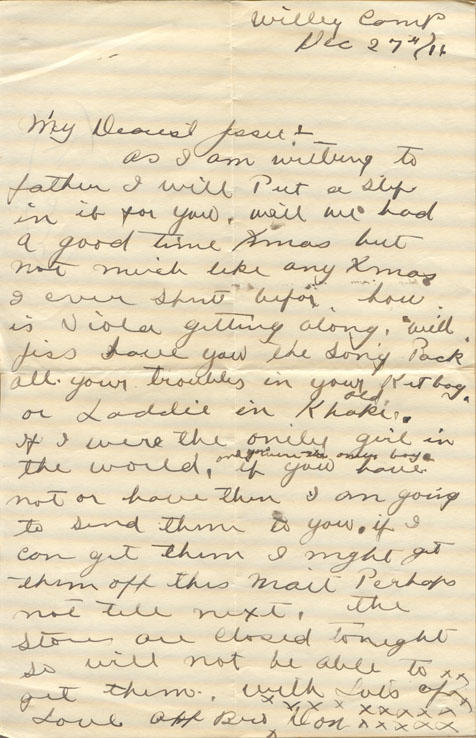 Willey Camp
Dec 27th/16
My Dearest Jssie
as I am wilting to
father I will Put a slip
in it for you. well we had
a good time Xmas but
not much like any Xmas
I ever spent befor how
is Viola getting along. will
Jiss have you the song Pack
all your troubles in your old Kit bag.
or Laddie in Khaki.
If I were the onily girl in
the world. and you were the only boy
if you have
not or have then I am going
to send them to you. if I
can get them I might get
them off this mait Perhaps
not till next. the
stores are closed tonight
so will not be able to xx
get them. with Lots of xx
Love aff Bro Don xxxxx